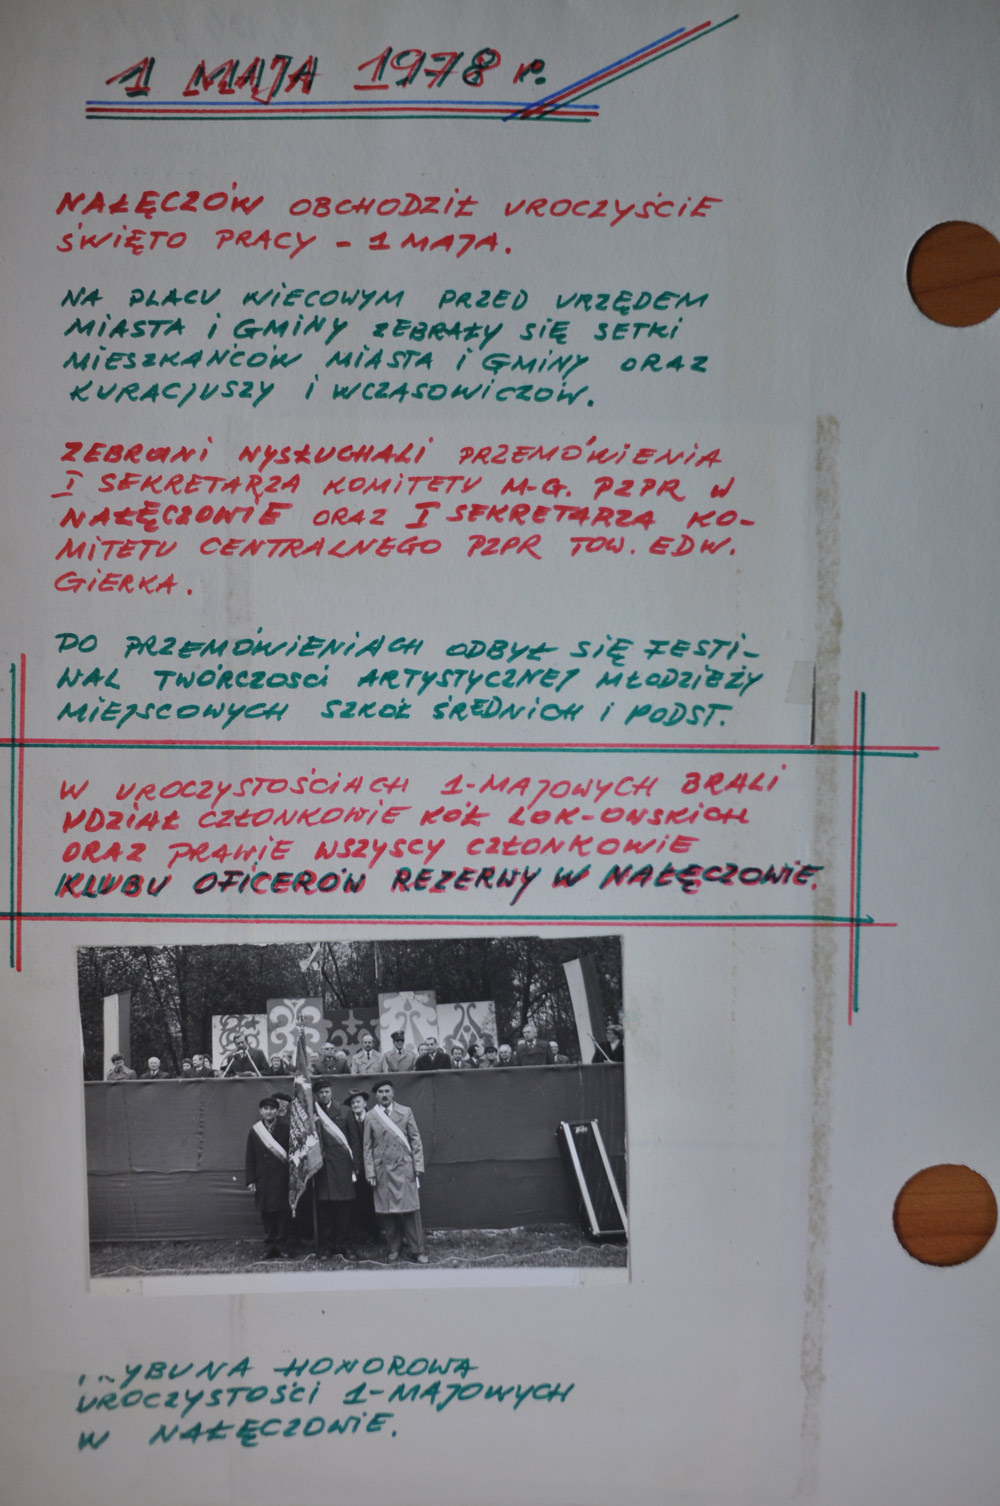 1 MAJA 1978 r.
NAŁĘCZÓW OBCHODZIŁ UROCZYŚCIE
ŚWIĘTO PRACY - 1 MAJA.
NA PLACU WIECOWYM PRZED URZĘDEM
MIASTA i GMINY ZEBRAŁY SIĘ SETKI
MIESZKAŃCÓW MIASTA i GMINY ORAZ
KURACJUSZY i WCZASOWICZÓW.
ZEBRANI WYSŁUCHALI PRZEMÓWIENIA
I SEKRETARZA KOMITETU M-G. PZPR W
NAŁĘCZOWIE ORAZ I SEKRETARZA KO-
MITETU CENTRALNEGO PZPR TOW. EDW.
GIERKA.
PO PRZEMÓWIENIACH ODBYŁ SIĘ FESTI-
WAL TWÓRCZOŚCI ARTYSTYCZNEJ MŁODZIEŻY
MIEJSCOWYCH SZKÓŁ ŚREDNICH i PODST.
W UROCZYSTOŚCIACH 1-MAJOWYCH BRALI
UDZIAŁ CZŁONKOWIE KÓŁ LOK-OWSKICH
ORAZ PRAWIE WSZYSCY CZŁONKOWIE
KLUBU OFICERÓW REZERWY W NAŁĘCZOWIE.
...YBUNA HONOROWA
UROCZYSTOŚCI 1-MAJOWYCH
W NAŁĘCZOWIE.